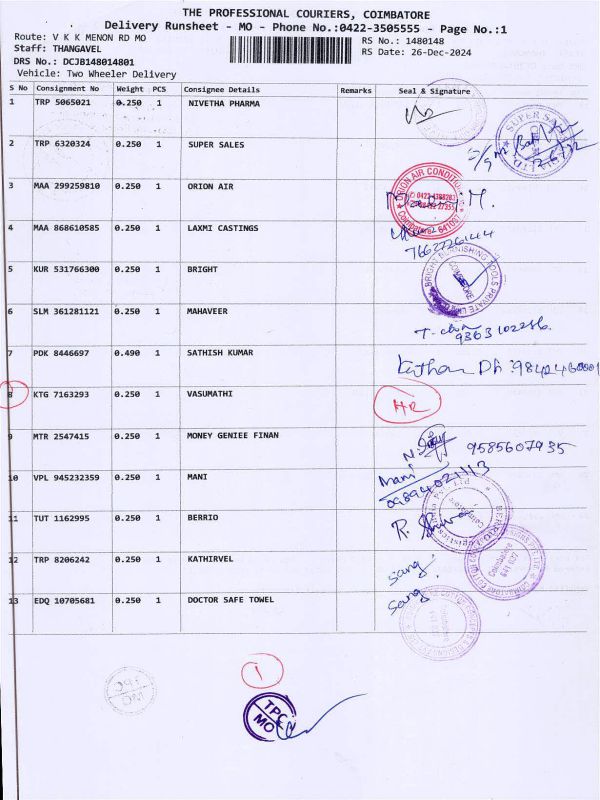 THE PROFESSIONAL COURIERS, COIMBATORE
Delivery Runsheet - MO - Phone No.:0422-3505555 - Page No.:1
Route: V K K MENON RD MO
RS No.: 1480148
Staff: THANGAVEL
RS Date: 26-Dec-2024
DRS No.: DCJB148014801
Vehicle: Two Wheeler Delivery
S No Consignment No Weight PCS Consignee Details Remarks Seal & Signature
1 TRP 5065021 0.250 1 NIVETHA PHARMA
2 TRP 6320324 0.250 1 SUPER SALES
SUPER SALES
3 MAA 299259810 0.250 1 ORION AIR
ORION AIR CONDITION
Coimbatore
4 MAA 868610585 0.250 1 LAXMI CASTINGS
7667726144
5 KUR 531766300 0.250 1 BRIGHT
BRIGHT BURNISHING TOOLS PRIVATE
COIMBATORE
6 SLM 361281121 0.250 1 MAHAVEER
9363102286
7 PDK 8446697 0.490 1 SATHISH KUMAR
Ph:
8 KTG 7163293 0.250 1 VASUMATHI
HR
9 MTR 2547415 0.250 1 MONEY GENIEE FINAN
9585607935
10 VPL 945232359 0.250 1 MANI
Mani
09894021113
11 TUT 1162995 0.250 1 BERRIO
R.
BERRIO
12 TRP 8206242 0.250 1 KATHIRVEL
Sang
Coimbatore
641 027
13 EDQ 10705681 0.250 1 DOCTOR SAFE TOWEL
Sang
1
TPC
MO